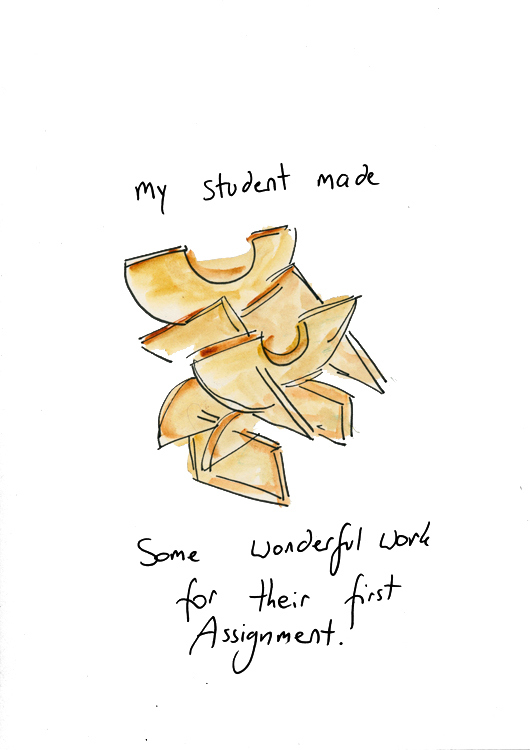 my student made
Some wonderful work
for their first
Assignment.